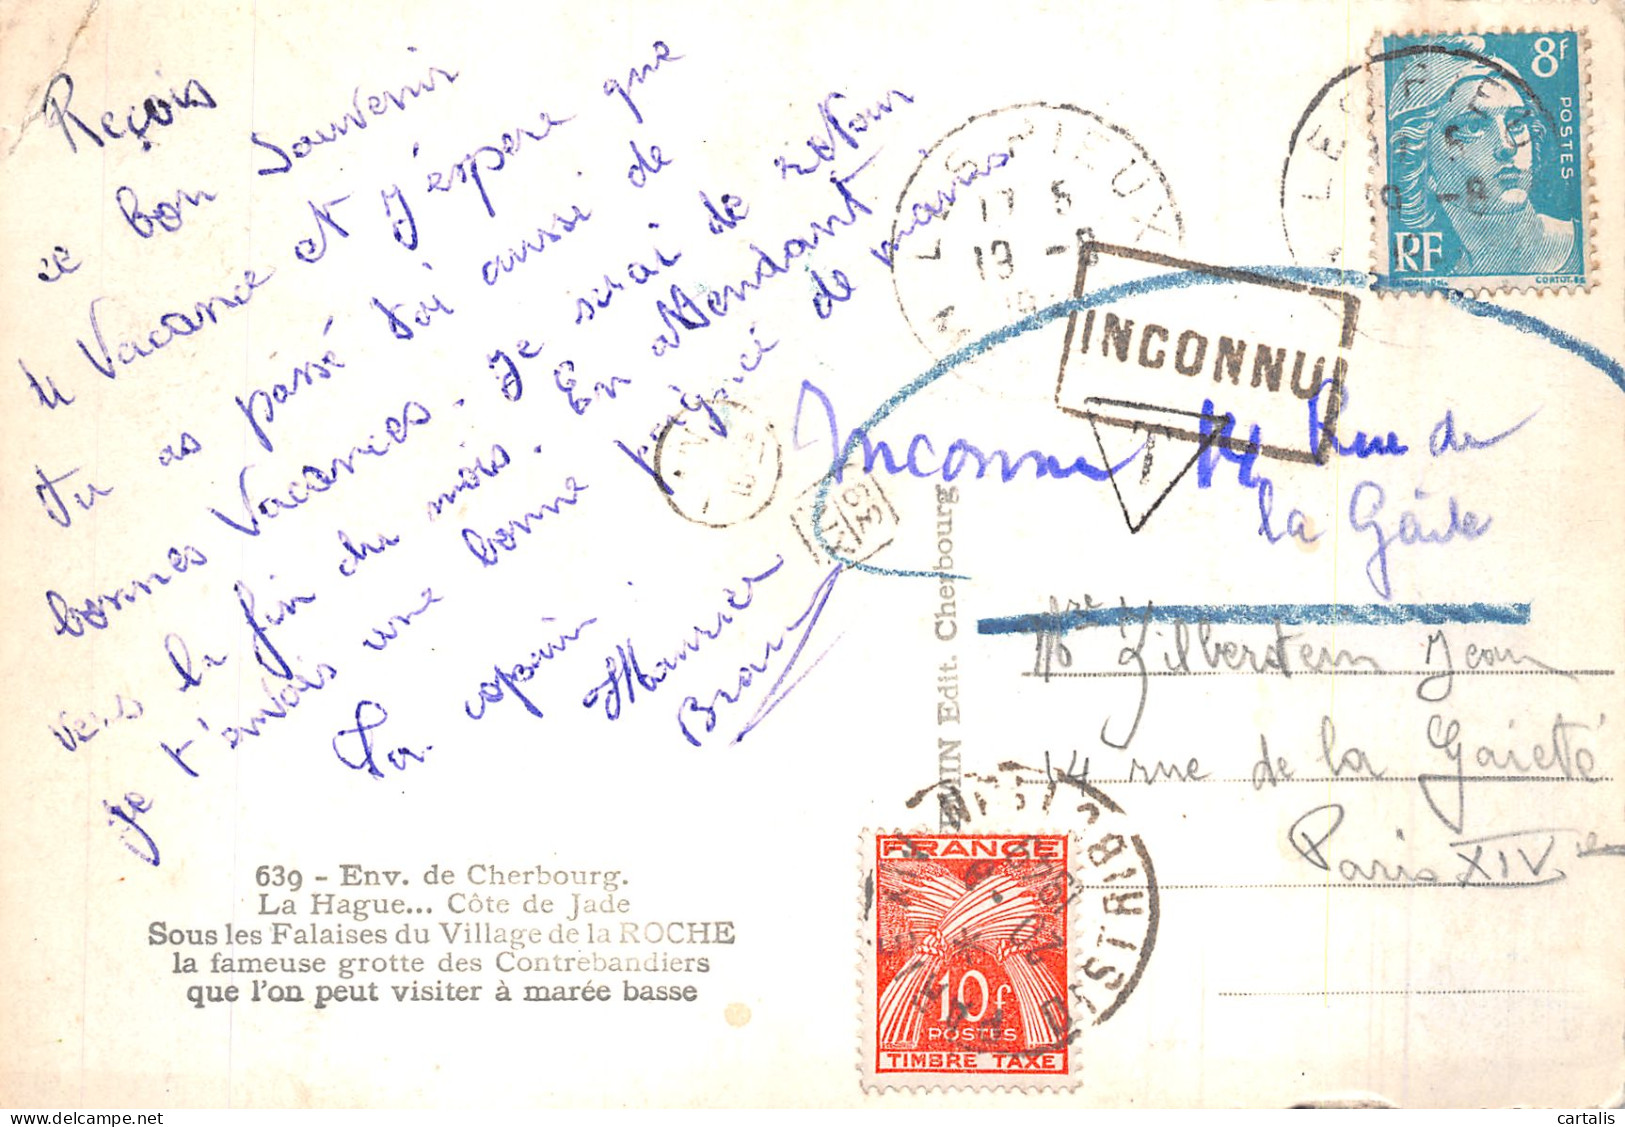 Reçois
ce bon Souvenir
de Vacance et J'éspere que
tu as passé toi aussi de
bonnes Vacances. Je serai de retour
vers la fin du mois. En attendant
je t'envois une bonne poigné de mains
Ton copain
Maurice
639 - Env. de Cherbourg.
La Hague... Côte de Jade
Sous les Falaises du Village de la ROCHE
la fameuse grotte des Contrebandiers
que l'on peut visiter à marée basse
Edit. Cherbourg
LES PIEUX
8f
POSTES
RF
INCONNU
T
Inconnu 14 Rue de
la Gaîte
Mre Zilberstein Jean
14 rue de la Gaieté
Paris XIVe
DISTRIBUTION
FRANCE
10f
POSTES
TIMBRE TAXE
cartalis